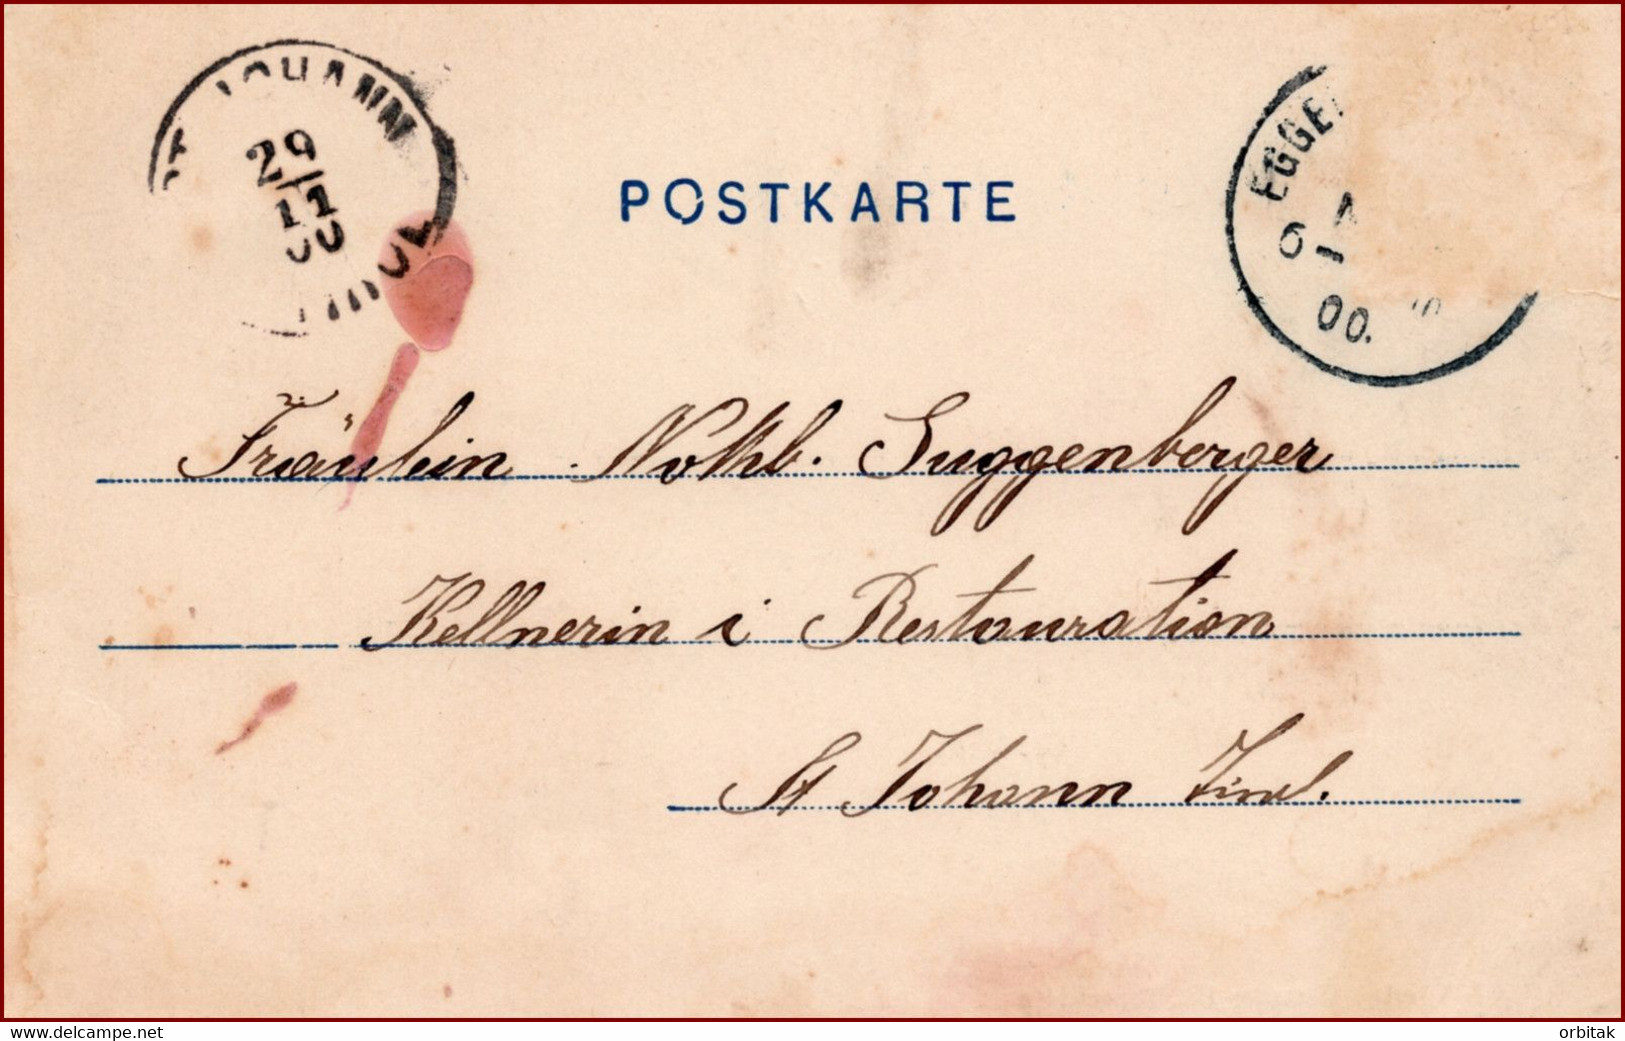 ST. JOHANN
29
11
00
TIROL
POSTKARTE
EGGE
6
00.
Fräulein Suggenberger
Kellnerin i Restauration
St Johann Tirol.
www.delcampe.net
orbitak